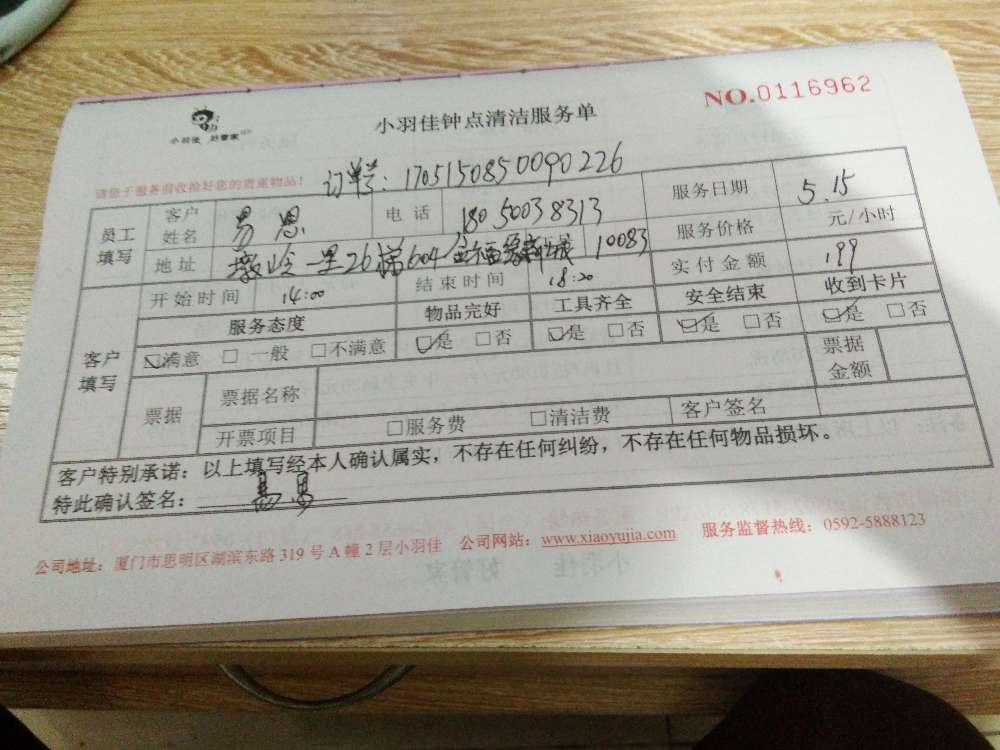 小羽佳 好管家
小羽佳钟点清洁服务单
NO.0116962
请您于服务前收拾好您的贵重物品!
订单号: 1705150850090226
员工填写 客户姓名 电话 18050038313 服务日期 5.15
地址 一里26梯604 10083 服务价格 元/小时
开始时间 14:00 结束时间 18:20 实付金额 199
客户填写 服务态度 物品完好 工具齐全 安全结束 收到卡片
☑满意 □一般 □不满意 ☑是 □否 ☑是 □否 ☑是 □否 ☑是 □否
票据 票据名称 票据金额
开票项目 □服务费 □清洁费 客户签名
客户特别承诺：以上填写经本人确认属实，不存在任何纠纷，不存在任何物品损坏。
特此确认签名：
公司地址：厦门市思明区湖滨东路319号A幢2层小羽佳 公司网站：www.xiaoyujia.com 服务监督热线：0592-5888123